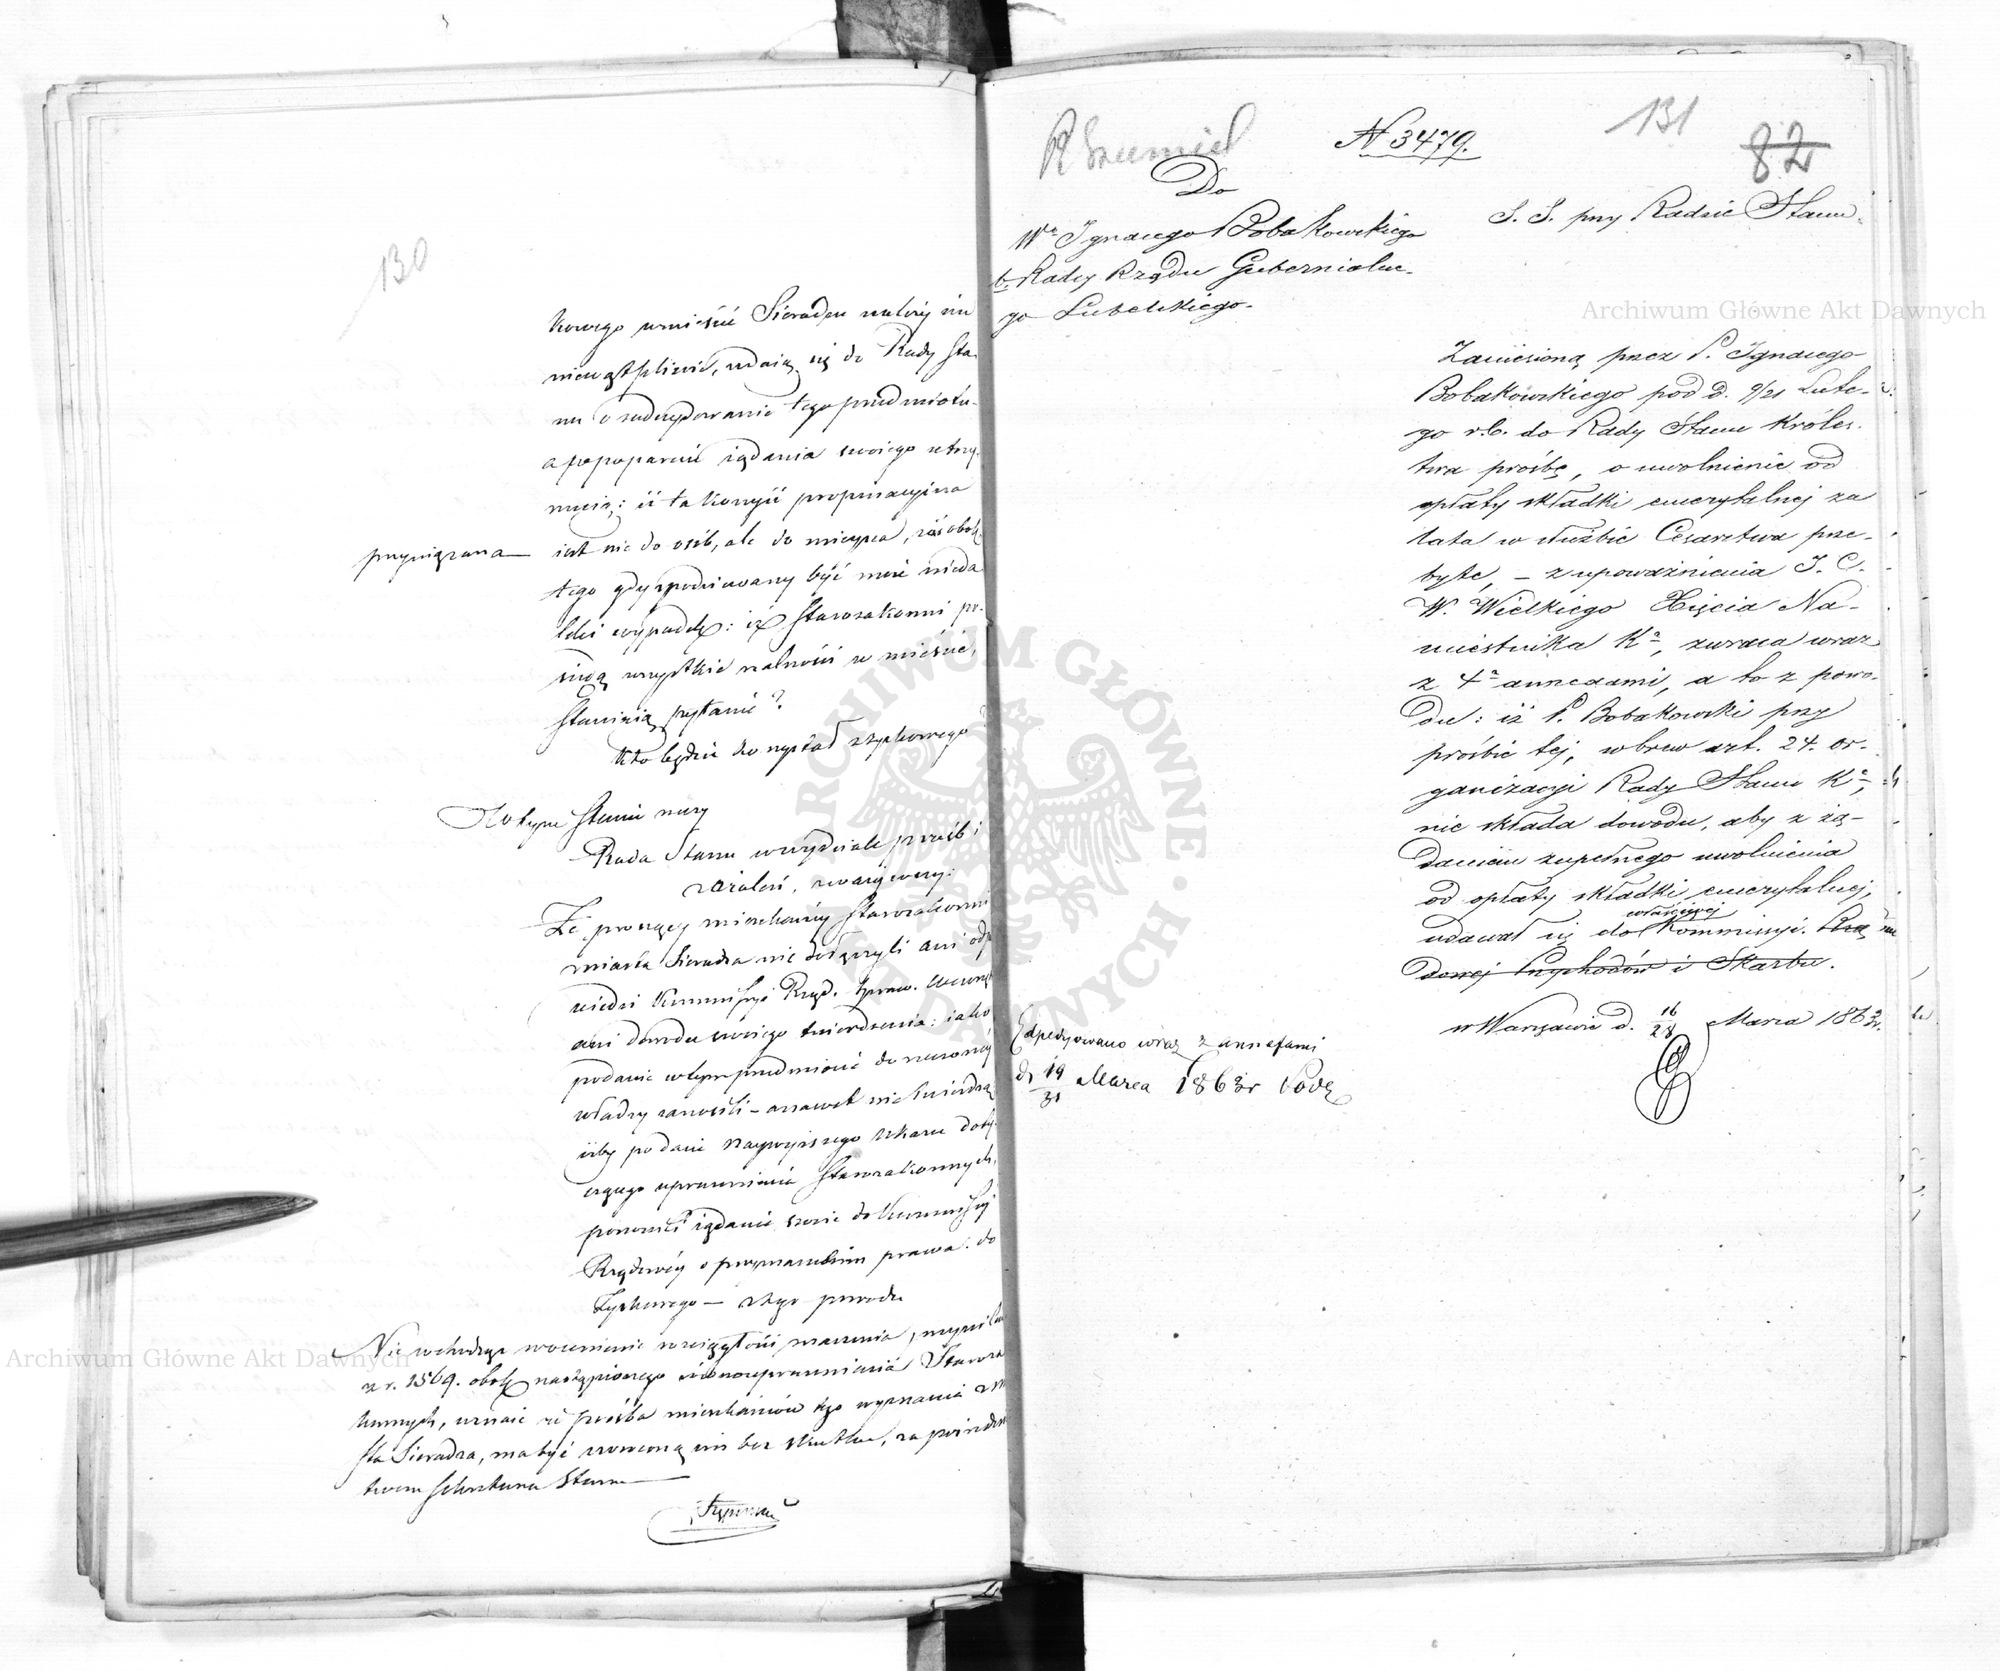 130
kowego w mieście Sieradzu należy im
niewątpliwie, udają się do Rady Sta-
nu o zadecydowanie tego przedmiotu
a po poparciu żądania swojego utrzy-
mują: iż ta korzyść propinacyjna
przywiązana
jest nie do osób, ale do miejsca, zaś obok
tego gdy spodziewany być może nieda-
leki wypadek: iż Starozakonni po-
siędą wszystkie realności w mieście,
Stawiają pytanie?
Kto będzie korzystał z szynkowego
Motywa Stanu rzeczy
Rada Stanu w wydziale próśb i
zażaleń, zważywszy:
Że proszący mieszkańcy Starozakonni
miasta Sieradza nie dołączyli ani odpo
wiedzi Kommissyi Rząd. Spraw. Wewnę
ani dowodu swojego twierdzenia: jako
podanie w tym przedmiocie do
władzy zanosili – a nawet nie twierdzą
iżby po dacie Najwyższego Ukazu doty
czącego uprawnienia Starozakonnych,
ponowili żądanie swoje do Kommissyi
Rządowej o przyznanie im prawa do
Szynkowego – z tego powodu
Nie wchodząc w ocenienie rozciągłości znaczenia,
z r. 1569. obok nastąpionego równouprawnienia Staroza
konnych, uznaje że prośba mieszkańców tego wyznania z mia
sta Sieradza, ma być zwróconą im bez skutku, za pośrednic
twem Sekretarza Stanu
131
82
N 3479.
Do
Wº Ignacego Bobakowskiego
b. Radcy Rządu Gubernialne-
go Lubelskiego.
S. S. przy Radzie Stanu.
Zaniesioną przez P. Ignacego
Bobakowskiego pod d. 9/21 Lute-
go r.b. do Rady Stanu Króles-
twa prośbę, o uwolnienie od
opłaty składki emerytalnej za
lata w służbie Cesarstwa prze-
byte, – z upoważnienia J. C.
W. Wielkiego Xięcia Na-
miestnika Kª, zwraca wraz
z 4ª annexami, a to z powo-
du: iż P. Bobakowski przy
prośbie tej, wbrew art. 24. or-
ganizacyi Rady Stanu Kª,
nie składa dowodu, aby z żą-
daniem zupełnego uwolnienia
od opłaty składki emerytalnej,
właściwej
udawał się do Kommissyi. Rzą
dowej Przychodów i Skarbu.
w Warszawie d. 16/28 Marca 1863 r.
Expedyowano wraz z annexami
d. 19/31 Marca 1863 r
Archiwum Główne Akt Dawnych
Archiwum Główne Akt Dawnych
ARCHIWUM GŁÓWNE AKT DAWNYCH